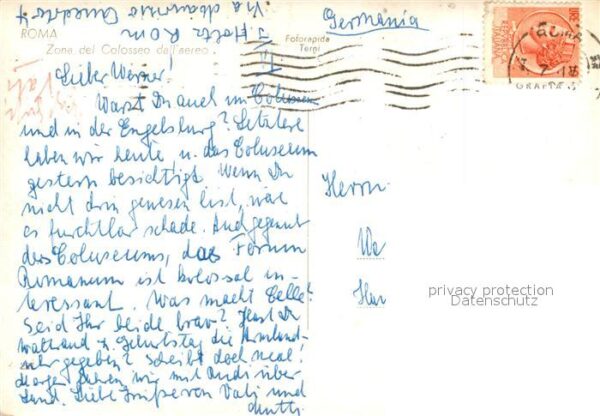 Via Maurizio Quadrio 4
I Holtz Rom
Germania
ROMA
Zona del Colosseo da l'aereo
Fotorapida
Terni
ROMA
Lieber Werner!
Warst Du auch im Coluseum
und in der Engelsburg? Letztere
haben wir heute, u. das Coluseum
gestern besichtigt. Wenn Du
nicht drin gewesen bist, wär
es furchtbar schade. Auch gegenüb
des Coluseums, das Forum
Romanum ist kolossal in-
teressant. Was macht Celle?
Seid Ihr beide brav? Hast Du
Waltraud z. Geburtstag die Armband-
uhr gegeben? Schreibt doch mal!
Morgen fahren wir mit Andi über
Land. Liebe Grüße von Vati und
Mutti.
Herrn
We
Han
privacy protection
Datenschutz